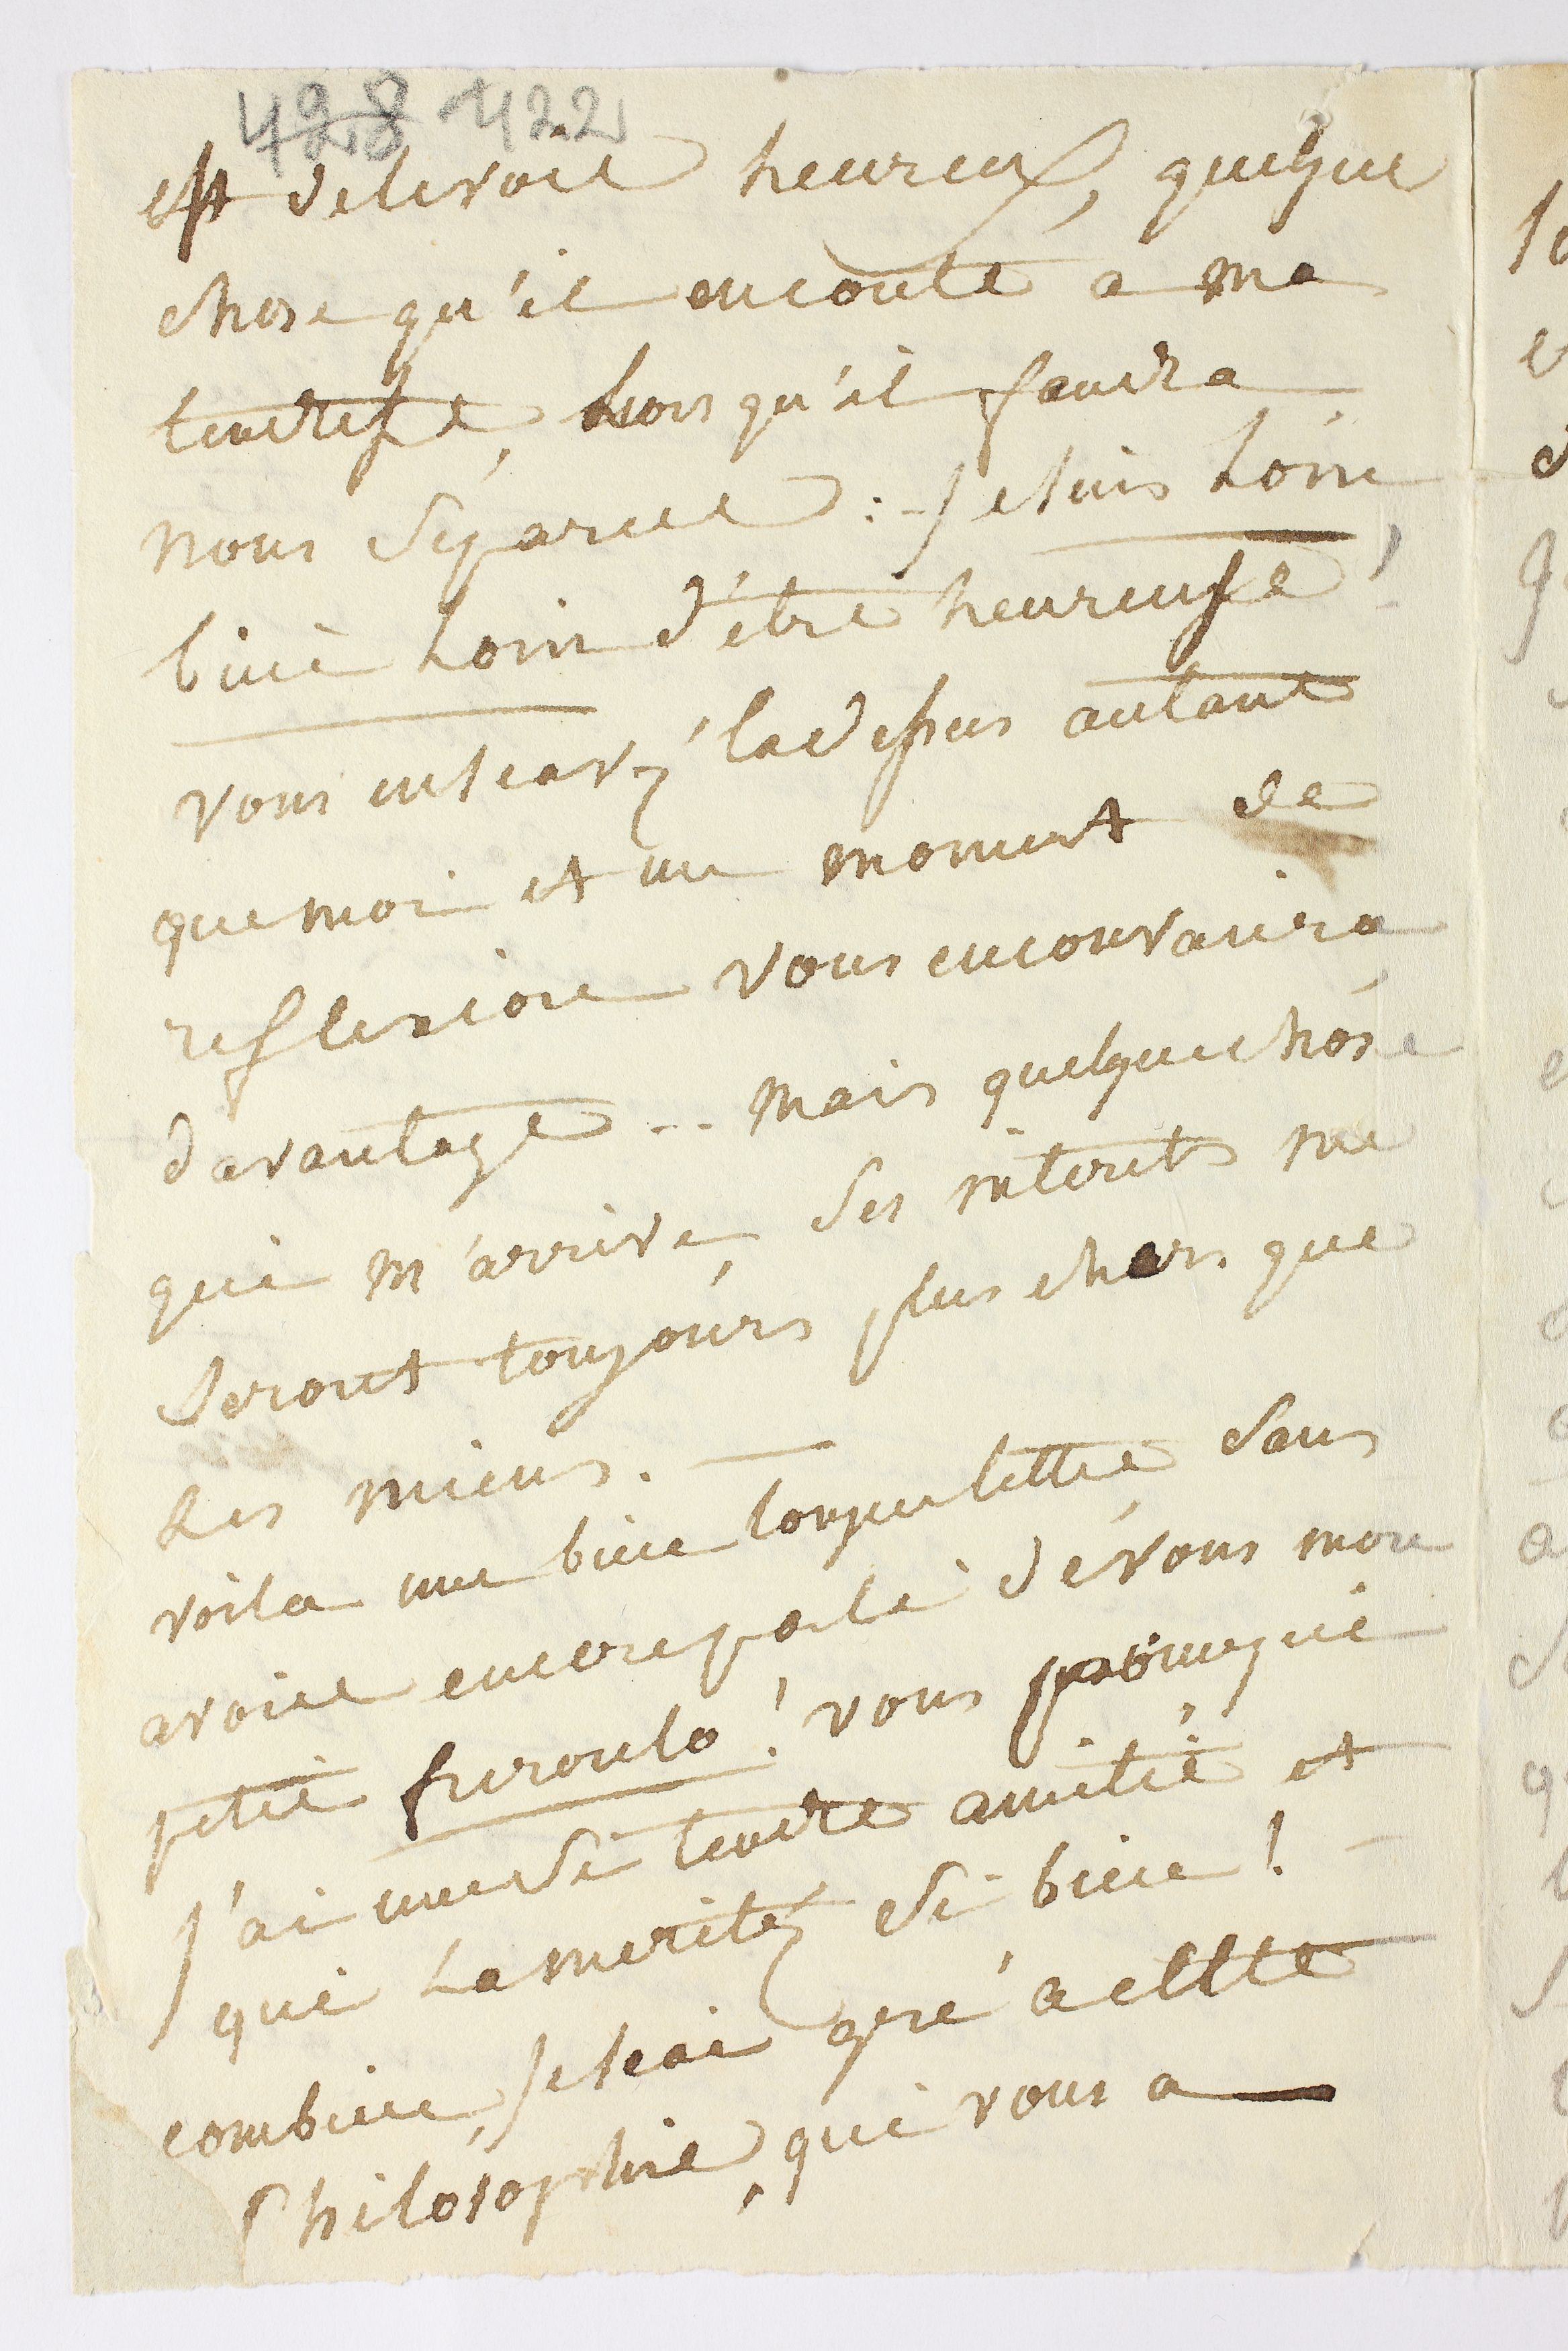 428 422
est de le voir heureux, quelque
chose qu'il en coute a ma
tendresse, Lors qu'il faudra
nous séparer : - Je suis Loin
bien Loin d'être heureuse !
vous en scavez la dessus autant
que moi et un moment de
reflexion vous en convaincra
davantage ... Mais quelque chose
qui m'arrive, Ses interets me
Seront toujours plus chers que
Les miens. —
voila une bien longue lettre Sans
avoir encore parlé de vous mon
petit furoulo ! vous pour qui
J'ai une Si tendre amitié, et
qui La meritez Si bien ! -
combien, Je scai gré a cette
Philosophie, qui vous a —